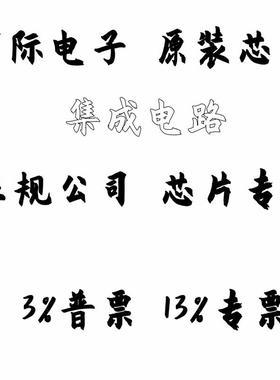 际电子 原装芯
集成电路
规公司 芯片专
3%普票 13%专票